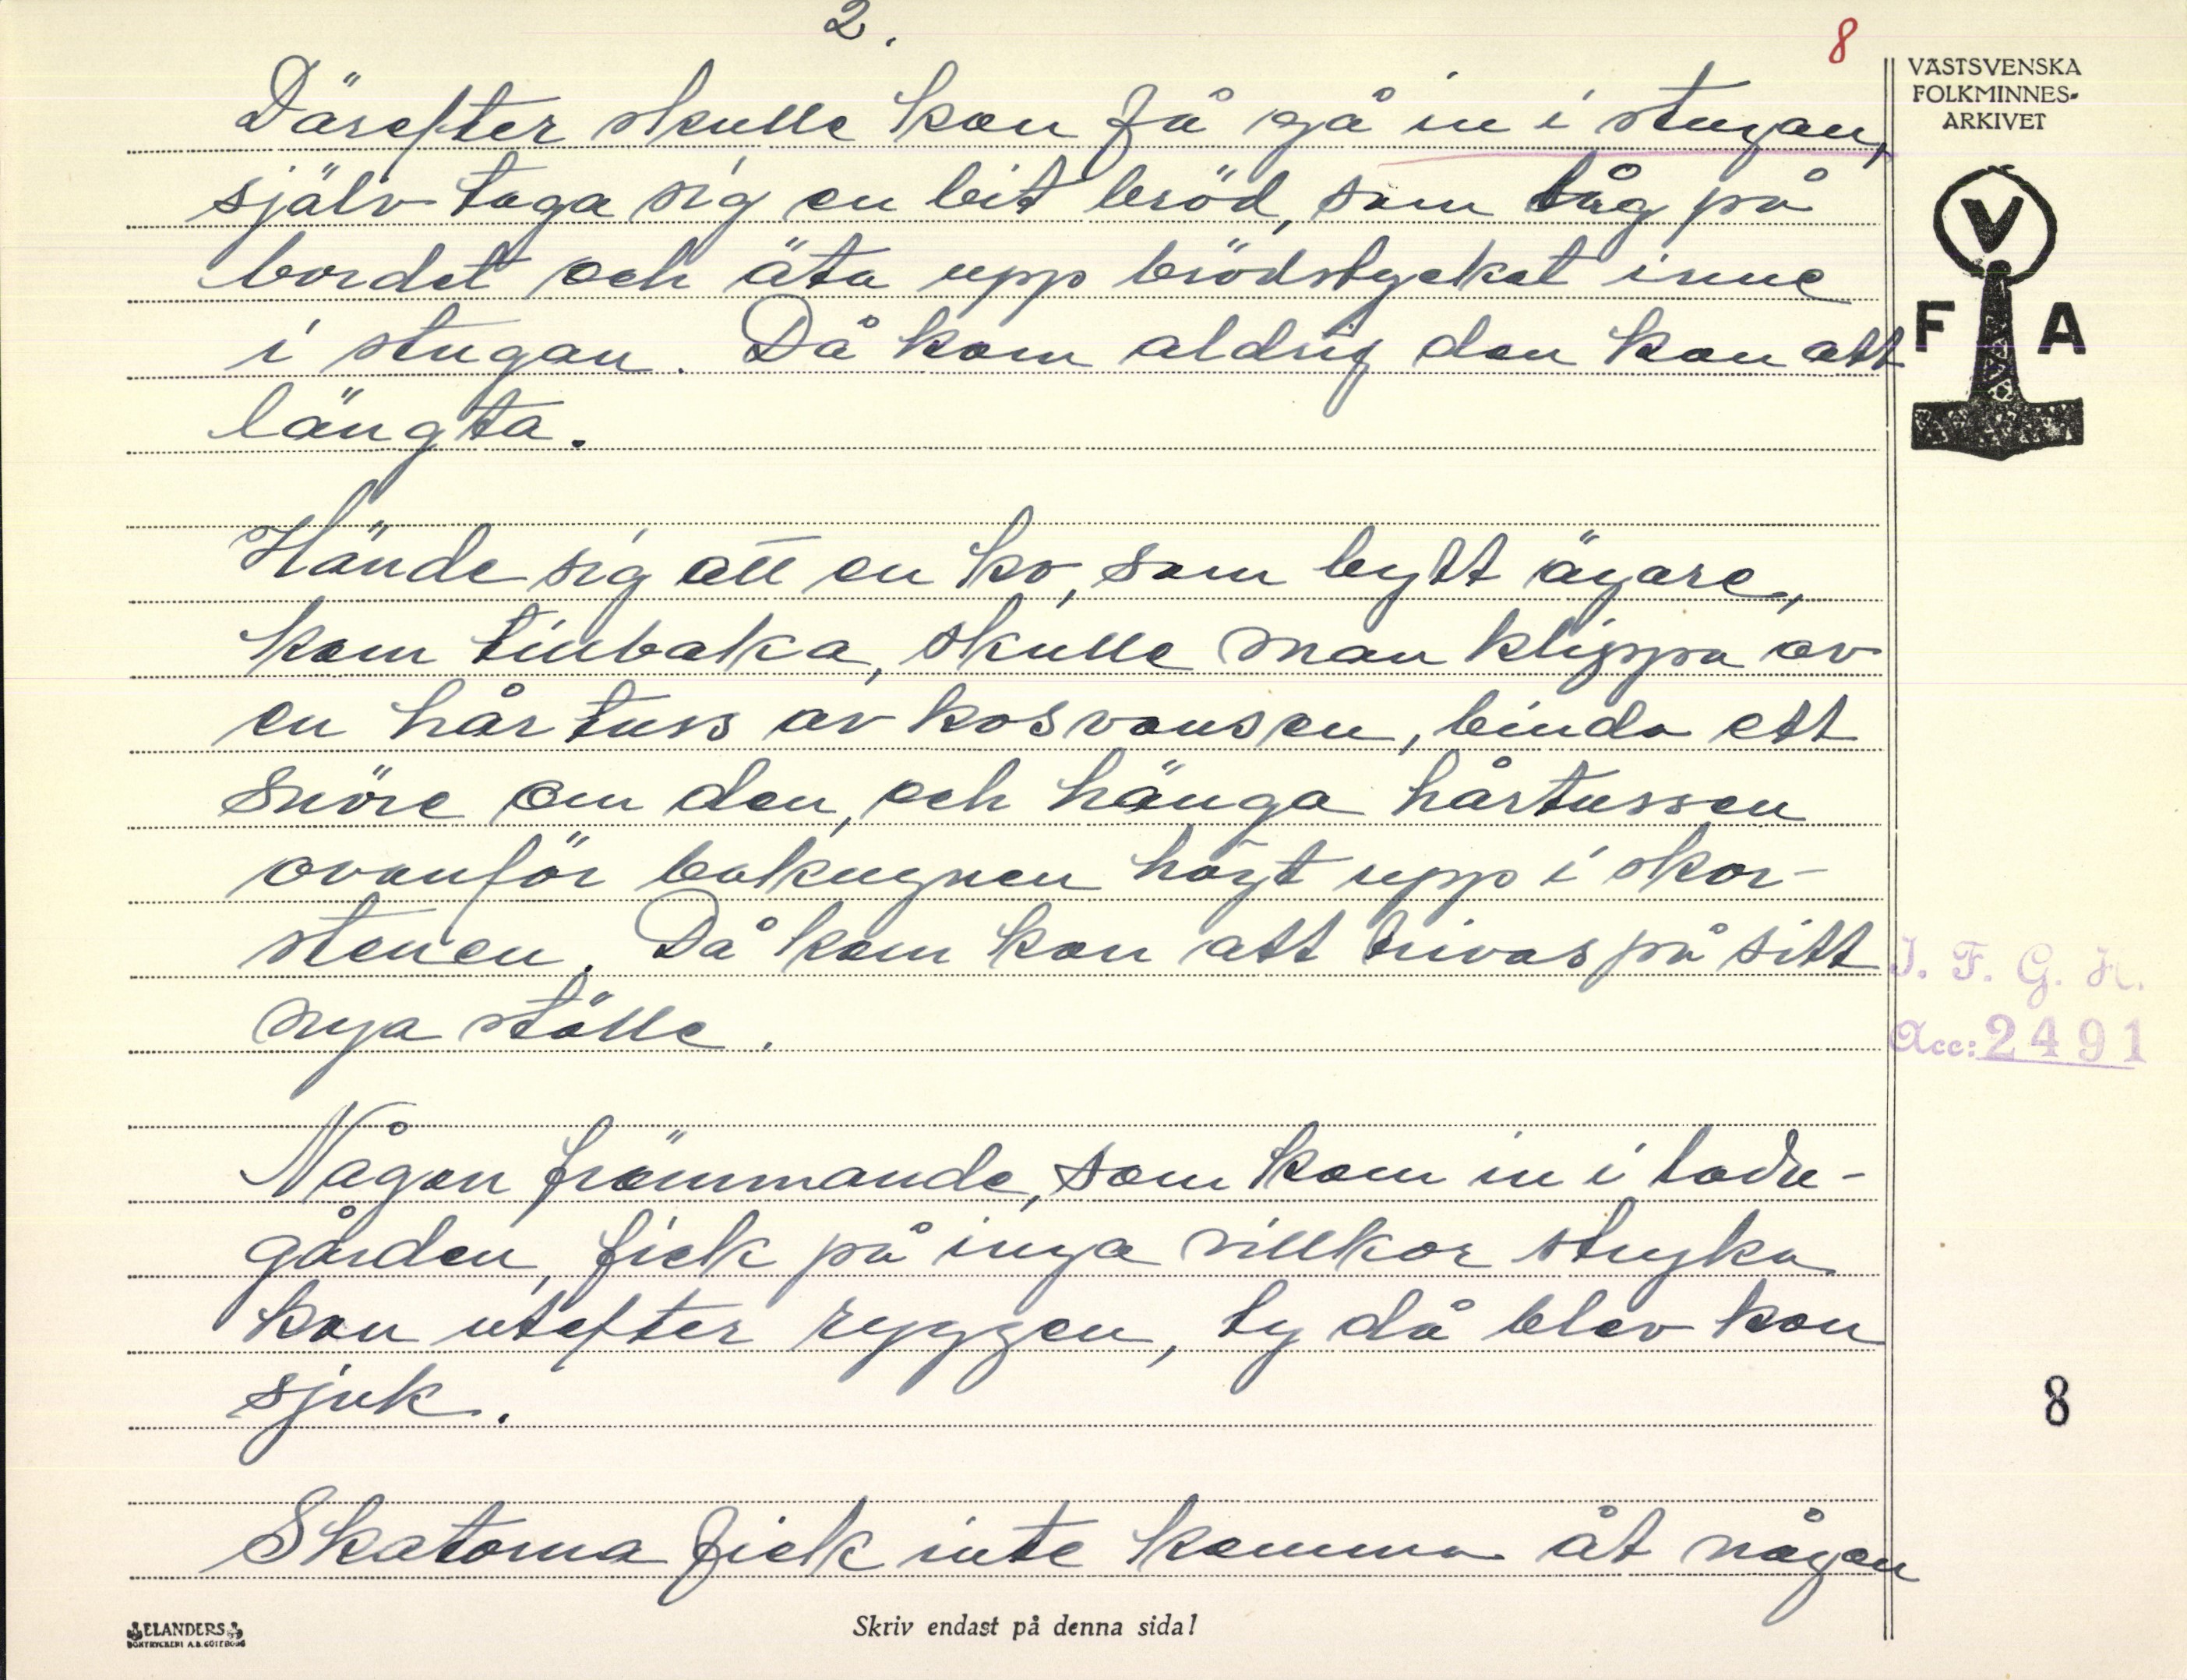 2.
8
Därefter skulle kon få gå in i stugan,
själv taga sig en bit bröd, som låg på
bordet och äta upp brödstycket inne
i stugan. Då kom aldrig den kon att
längta.
Hände sig att en ko, som bytt ägare,
kom tillbaka, skulle man klippa av
en hårtuss av kosvansen, binda ett
snöre om den, och hänga hårtussen
ovanför bakugnen högt upp i skor-
stenen. Då kom kon att trivas på sitt
nya ställe.
Någon främmande, som kom in i ladu-
gården, fick på inga villkor stryka
kon utefter ryggen, ty då blev kon
sjuk.
Skatorna fick inte komma åt någon
VÄSTSVENSKA
FOLKMINNES-
ARKIVET
V
F A
I. F. G. H.
Acc: 2491
8
ELANDERS
BOKTRYCKERI A.B. GÖTEBORG
Skriv endast på denna sida!